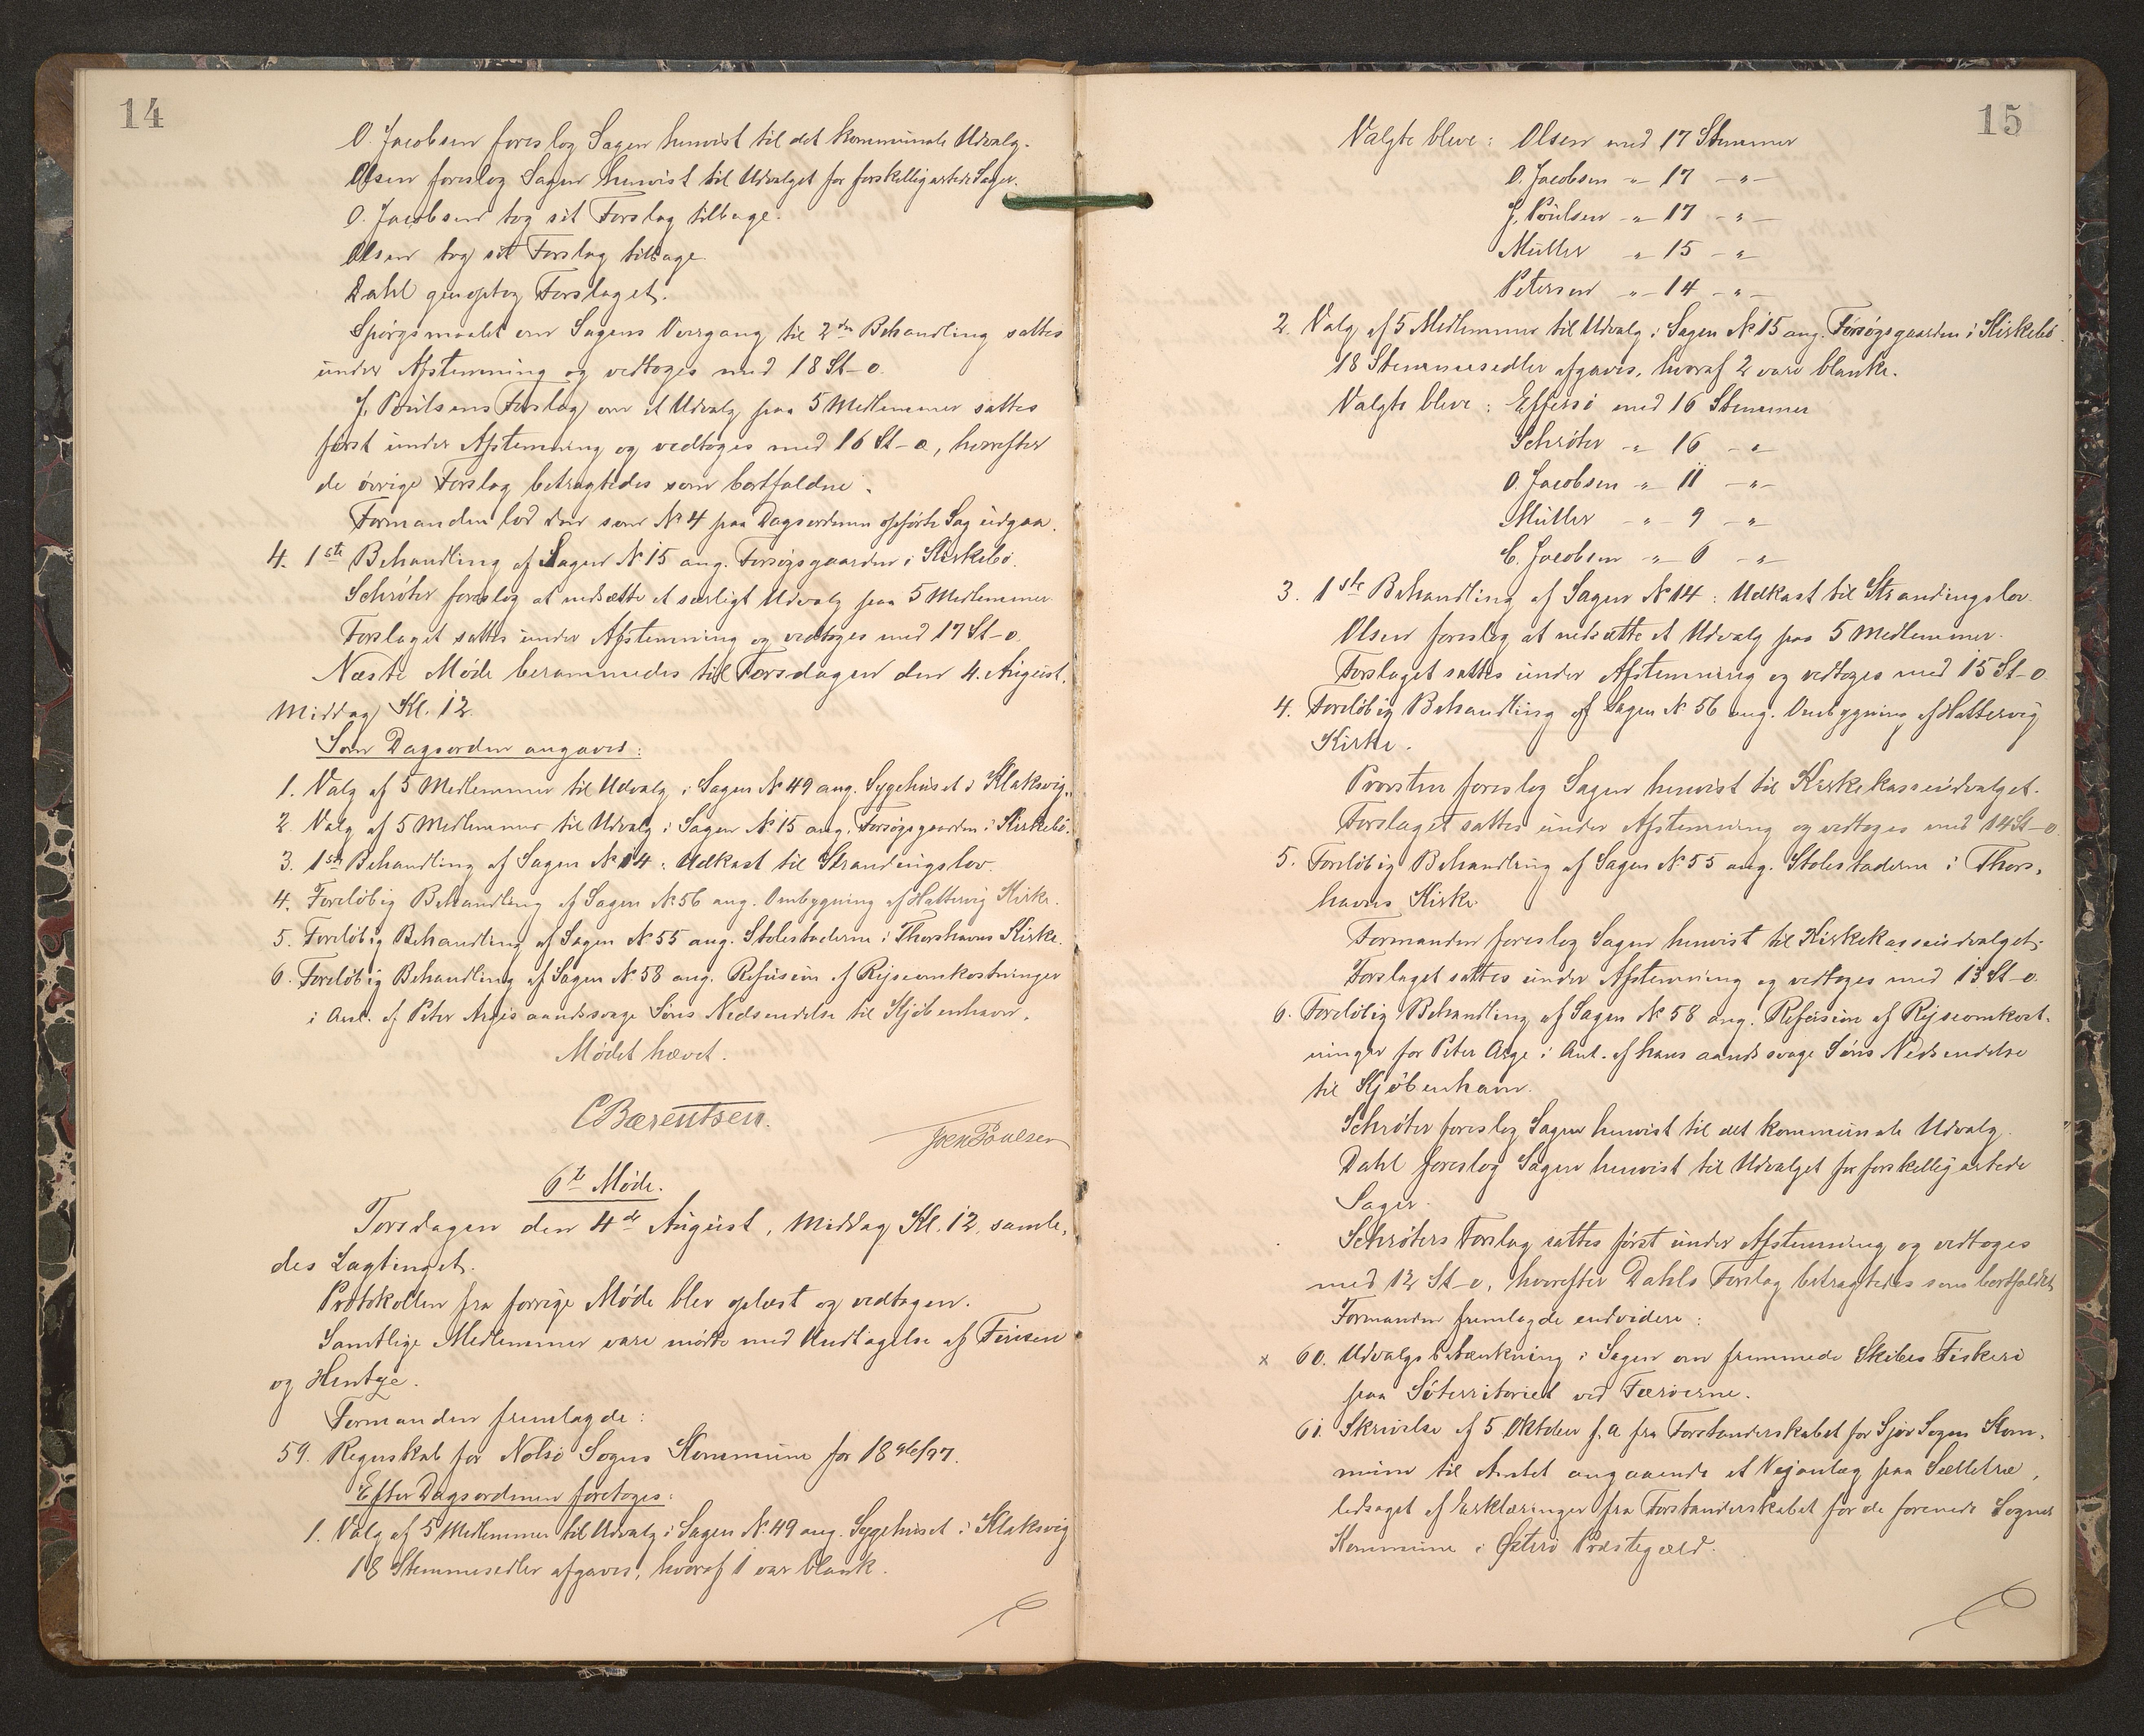 14
O. Jacobsen foreslog Sagen henvist til det kommunale Udvalg.
Olsen foreslog Sagen henvist til Udvalget for forskelligartede Sager.
O. Jacobsen tog sit Forslag tilbage.
Olsen tog sit Forslag tilbage
Dahl genoptog Forslaget.
Spörgsmaalet om Sagens Overgang til 2den Behandling sattes
under Afstemning og vedtoges med 18 St-o.
J. Poulsens Forslag om et Udvalg paa 5 Medlemmer sattes
först under Afstemning og vedtoges med 16 St-o, hvorefter
de övrige Forslag betragtedes som bortfaldne.
Formanden lod den som No 4 paa Dagsordenen opförte Sag udgaa.
4. 1ste Behandling af Sagen No 15 ang. Forsögsgaarden i Kirkebö.
Schröter foreslog at nedsætte et særligt Udvalg paa 5 Medlemmer
Forslaget sattes under Afstemning og vedtoges med 17 St-o.
Næste Möde berammedes til Torsdagen den 4. August,
Middag Kl. 12.
Som Dagsorden angaves:
1. Valg af 5 Medlemmer til Udvalg i Sagen No 49 ang. Sygehuset i Klaksvig.
2. Valg af 5 Medlemmer til Udvalg i Sagen No 15 ang. Forsögsgaarden i Kirkebö.
3. 1ste Behandling af Sagen No 14: Udkast til Strandingslov.
4. Forelöbig Behandling af Sagen No 56 ang. Ombygning af Hattervig Kirke.
5. Forelöbig Behandling af Sagen No 55 ang. Stolestaderne i Thorshavns Kirke.
6. Forelöbig Behandling af Sagen No 58 ang. Refusion af Rejseomkostninger
i Anl. af Peter Arges aandssvage Söns Nedsendelse til Kjöbenhavn.
Mödet hævet.
CBærentsen.
Joen Poulsen
6te Möde.
Torsdagen den 4de August, Middag Kl. 12, samle-
des Lagtinget.
Protokollen fra forrige Möde blev oplæst og vedtagen.
Samtlige Medlemmer vare mödte med Undtagelse af Finsen
og Hentze.
Formanden fremlagde:
59. Regnskab for Nolsö Sogns Kommune for 1896/97.
Efter Dagsordenen foretoges:
1. Valg af 5 Medlemmer til Udvalg i Sagen No 49 ang. Sygehuset i Klaksvig
18 Stemmesedler afgaves, hvoraf 1 var blank.
15
Valgte bleve: Olsen med 17 Stemmer
O. Jacobsen -"- 17 -"-
J. Poulsen -"- 17 -"-
Müller -"- 15 -"-
Petersen -"- 14 -"-
2. Valg af 5 Medlemmer til Udvalg i Sagen No 15 ang. Forsögsgaarden i Kirkebö.
18 Stemmesedler afgaves, hvoraf 2 vare blanke.
Valgte bleve: Effersö med 16 Stemmer
Schröter -"- 16 -"-
O. Jacobsen -"- 11 -"-
Müller -"- 9 -"-
C. Jacobsen -"- 6 -"-
3. 1ste Behandling af Sagen No 14: Udkast til Strandingslov.
Olsen foreslog at nedsætte et Udvalg paa 5 Medlemmer.
Forslaget sattes under Afstemning og vedtoges med 15 St-o.
4. Forelöbig Behandling af Sagen No 56 ang. Ombygning af Hattervig
Kirke.
Provsten foreslog Sagen henvist til Kirkekasseudvalget.
Forslaget sattes under Afstemning og vedtoges med 14 St-o.
5. Forelöbig Behandling af Sagen No 55 ang. Stolestaderne i Thors-
havns Kirke.
Formanden foreslog Sagen henvist til Kirkekasseudvalget.
Forslaget sattes under Afstemning og vedtoges med 13 St-o.
6. Forelöbig Behandling af Sagen No 58 ang. Refusion af Rejseomkost-
ninger for Peter Arge i Anl. af hans aandssvage Söns Nedsendelse
til Kjöbenhavn.
Schröter foreslog Sagen henvist til det kommunale Udvalg.
Dahl foreslog Sagen henvist til Udvalget for forskelligartede
Sager.
Schröters Forslag sattes först under Afstemning og vedtoges
med 12 St-o, hvorefter Dahls Forslag betragtedes som bortfaldet.
Formanden fremlagde endvidere:
x 60. Udvalgsbetænkning i Sagen om fremmede Skibes Fiskeri
paa Söterritoriet ved Færöerne.
61. Skrivelse af 5. Oktober f. A. fra Forstanderskabet for Sjov Sogns Kom-
mune til Amtet angaaende et Vejanlæg paa Selletræ,
ledsaget af Erklæringer fra Forstanderskabet for de forenede Sognes
Kommune i Österö Præstegæld.